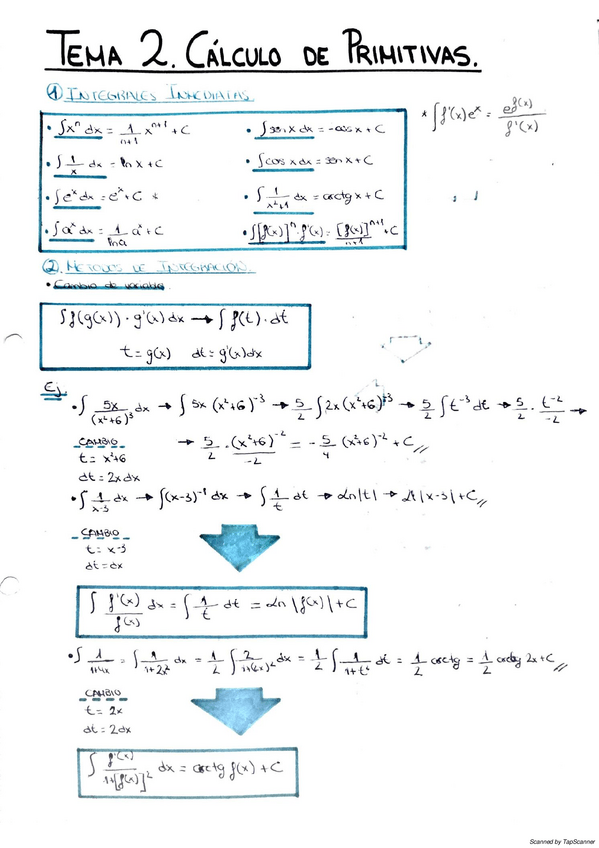 TEMA 2. CÁLCULO DE PRIMITIVAS.
① INTEGRALES INMEDIATAS.
* ∫f'(x)eˣ = e^f(x) / f'(x)
• ∫xⁿ dx = 1/(n+1) xⁿ⁺¹ + C
• ∫sin x dx = -cos x + C
• ∫1/x dx = ln x + C
• ∫cos x dx = sen x + C
• ∫eˣ dx = eˣ + C *
• ∫1/(x²+1) dx = arctg x + C
• ∫aˣ dx = 1/ln a aˣ + C
• ∫[f(x)]ⁿ · f'(x) = [f(x)]ⁿ⁺¹/(n+1) + C
② MÉTODOS DE INTEGRACIÓN.
• Cambio de variable.
∫f(g(x)) · g'(x) dx → ∫f(t) · dt
t = g(x) dt = g'(x)dx
Ej.
• ∫ 5x/(x²+6)³ dx → ∫ 5x (x²+6)⁻³ → 5/2 ∫2x(x²+6)⁻³ → 5/2 ∫t⁻³ dt → 5/2 · t⁻²/-2 →
→ 5/2 · (x²+6)⁻²/-2 = -5/4 (x²+6)⁻² + C //
CAMBIO
t = x²+6
dt = 2x dx
• ∫ 1/(x-3) dx → ∫(x-3)⁻¹ dx → ∫ 1/t dt → Ln|t| → Ln|x-3| + C //
CAMBIO
t = x-3
dt = dx
∫ f'(x)/f(x) dx = ∫ 1/t dt = Ln |f(x)| + C
• ∫ 1/(1+4x) = ∫ 1/(1+2x²) dx = 1/2 ∫ 2/(1+(2x)²) dx = 1/2 ∫ 1/(1+t²) dt = 1/2 arctg = 1/2 arctg 2x + C //
CAMBIO
t = 2x
dt = 2dx
∫ f'(x)/(1+[f(x)]²) dx = arctg f(x) + C
Scanned by TapScanner